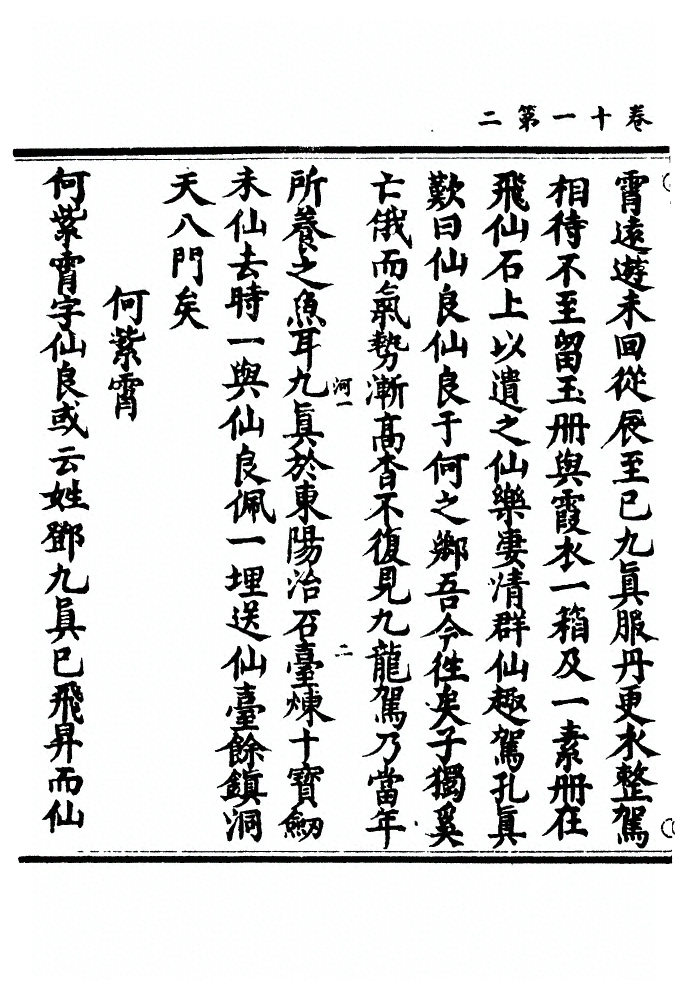 卷十一第二
霄遠遊未回從辰至巳九眞服丹更衣整駕
相待不至留玉册與霞衣一箱及一素册在
飛仙石上以遺之仙樂凄清群仙趣駕孔眞
歎曰仙良仙良于何之鄉吾今徃矣子獨奚
亡俄而氣勢漸高杳不復見九龍駕乃當年
所養之魚耳九眞於東陽治石臺煉十寶劒
河一
二
未仙去時一與仙良佩一埋送仙臺餘鎮洞
天八門矣
何紫霄
何紫霄字仙良或云姓鄧九眞巳飛昇而仙